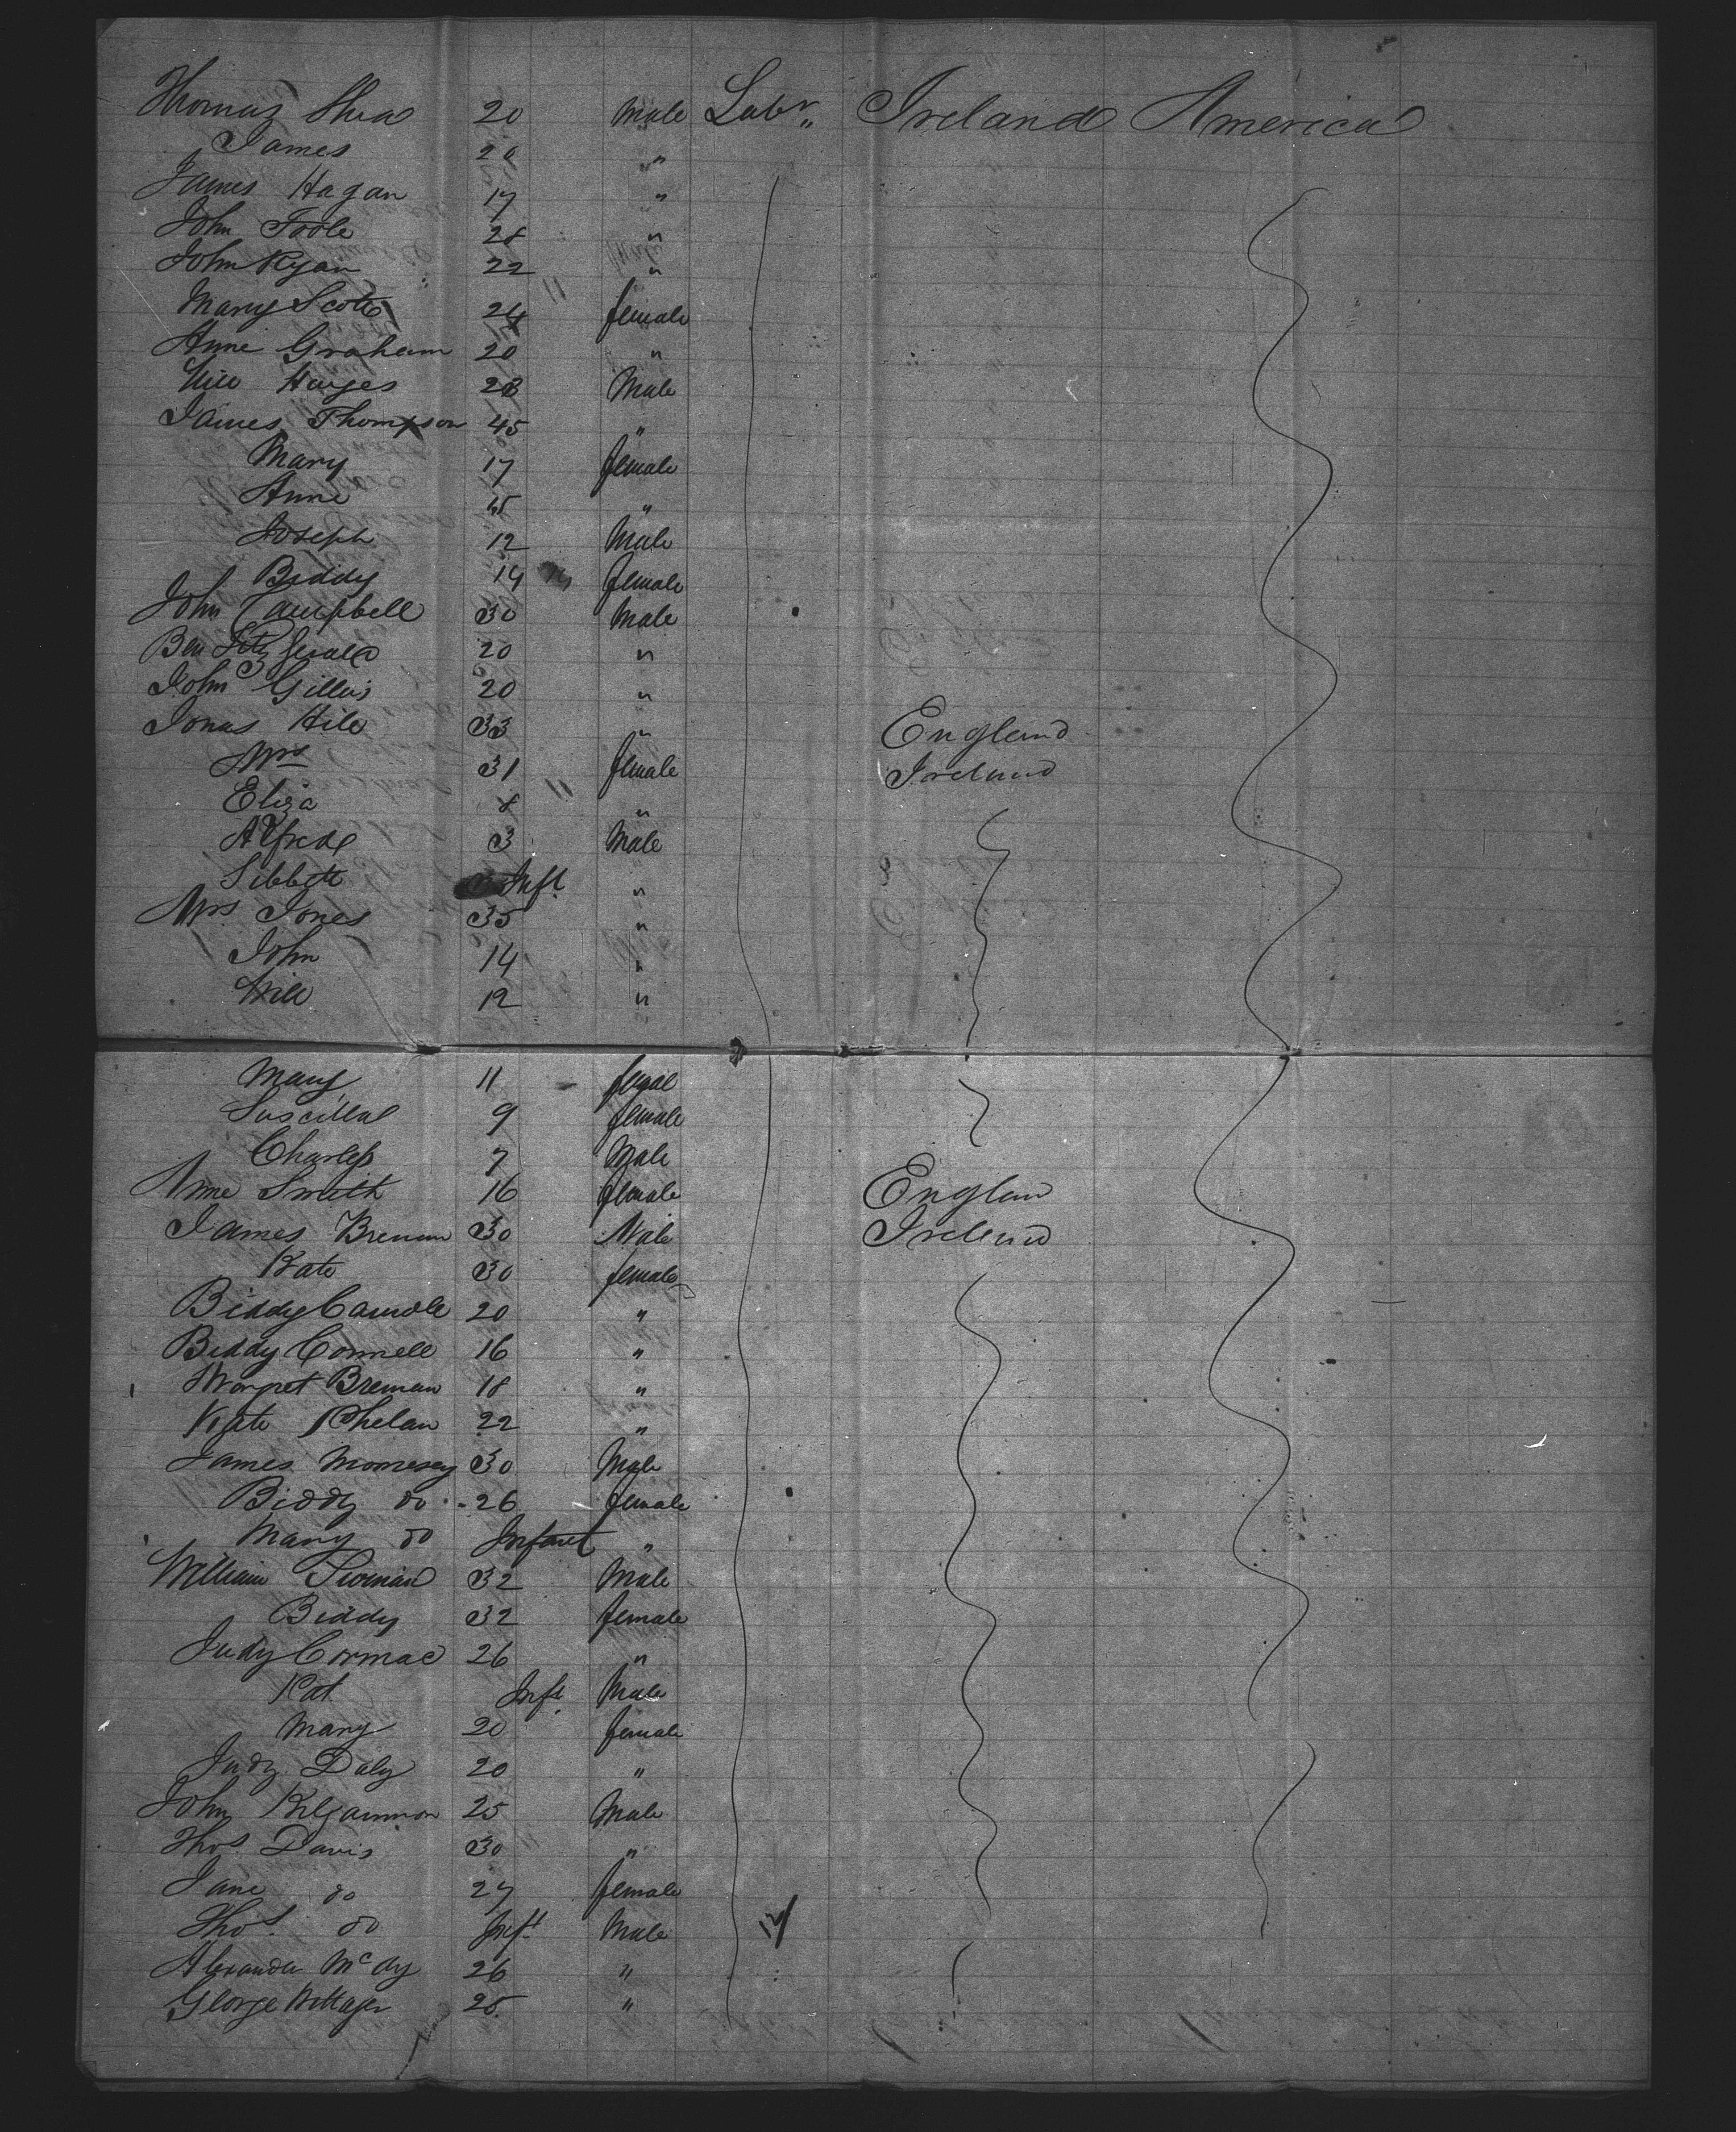 Thomas Shea 20 Male Labr " Ireland America
James 20 "
James Hagan 17 "
John Toole 28 "
John Ryan 22 "
Mary Scott 24 female
Anne Graham 20 "
Will Hayes 23 Male
James Thompson 45 "
Mary 17 female
Anne 45 "
Joseph 12 Male
Biddy 14 female
John Campbell 30 Male
Ben Fitzgerald 20 "
John Gillis 20 "
Jonas Hill 33 " England
Mrs 31 female Ireland
Eliza 8 "
Alfred 3 Male
Inft "
Mrs Jones 35 "
John 14 "
Will 12 "
Mary 11
9 female
Charles 7 Male
Anne Smith 16 female Englan
James Brenan 30 Male Ireland
Kate 30 female
Biddy 20 "
Biddy Connell 16 "
Margret Brenan 18 "
Kate Phelan 22 "
James 30 Male
Biddy do 26 female
Mary do Infant "
William 32 Male
Biddy 32 female
Judy Cormac 26 "
Pat Inft Male
Mary 20 female
Judy Daly 20 "
John Kilgannon 25 Male
Thos Davis 30 "
Jane do 27 female
Thos. do Inft Male
Alexander 26 "
George 25 "